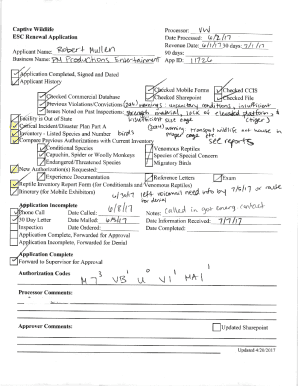 Captive Wildlife
ESC Renewal Application
Processor: VW
Date Processed: 6/2/17
Revenue Date: 6/1/17 30 days: 7/1/17
90 days:
Applicant Name: Robert Mullen
Business Name: PM Productions Entertainment App ID: 11726
Application Completed, Signed and Dated
Applicant History
Checked Mobile Forms Checked CCIS
Checked Commercial Database Checked Sharepoint Checked File
Previous Violations/Convictions warnings: unsanitary conditions, insufficient
Issues Noted on Past Inspections: strength material, lack of elevated platform
Facility is Out of State insufficient cage (tiger)
Critical Incident/Disaster Plan Part A warning: transport wildlife not house in
Inventory - Listed Species and Number birds proper cage
Compare Previous Authorizations with Current Inventory see reports
Conditional Species Venomous Reptiles
Capuchin, Spider or Woolly Monkeys Species of Special Concern
Endangered/Threatened Species Migratory Birds
New Authorization(s) Requested:
Experience Documentation Reference Letters Exam
Reptile Inventory Report Form (for Conditionals and Venomous Reptiles)
Itinerary (for Mobile Exhibitors) 6/30/17 left voicemail need info by 7/5/17 or cause for denial
Application Incomplete
Phone Call Date Called: 6/8/17 Notes: Called in got emerg contact
30 Day Letter Date Mailed: Date Information Received: 7/7/17
Inspection Date Ordered: Date Completed:
Application Complete, Forwarded for Approval
Application Incomplete, Forwarded for Denial
Application Complete
Forward to Supervisor for Approval
Authorization Codes
Processor Comments:
Approver Comments:
Updated Sharepoint
Updated 4/20/2017